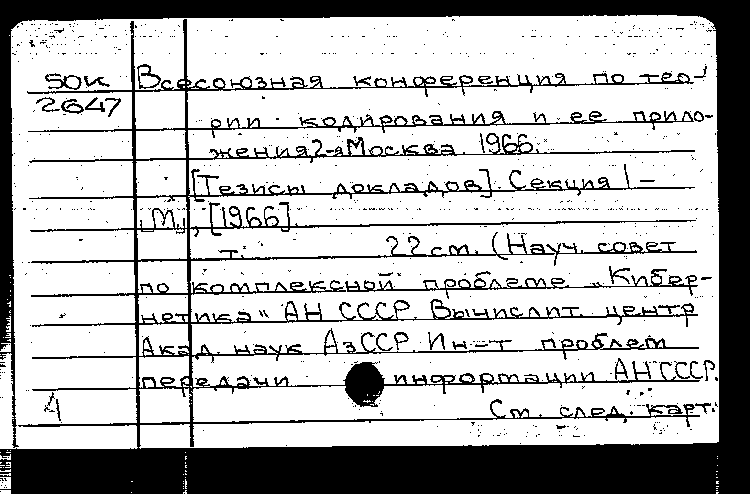 SOK Всесоюзная конференция по тео-
2647
рии кодирования и ее прило-
жения, 2-я Москва 1966.
[Тезисы докладов]. Секция 1 –
"М", [1966].
т. 22 см. (Науч. совет
по комплексной проблеме „Кибер-
нетика" АН СССР. Вычислит. центр
Акад. наук АзССР. Ин-т проблем
передачи информации АН СССР.
4 См. след. карт.